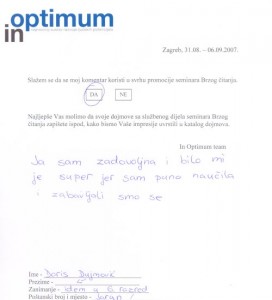 in optimum
Zagreb, 31.08. – 06.09.2007.
Slažem se da se moj komentar koristi u svrhu promocije seminara Brzog čitanja.
DA NE
Najljepše Vas molimo da svoje dojmove sa službenog dijela seminara Brzog
čitanja zapišete ispod, kako bismo Vaše impresije uvrstili u katalog dojmova.
In Optimum team
Ja sam zadovoljna i bilo mi
je super jer sam puno naučila
i zabavljali smo se
Ime - Doris Dujmović
Prezime -
Zanimanje - Idem u 5 razred
Poštanski broj i mjesto -